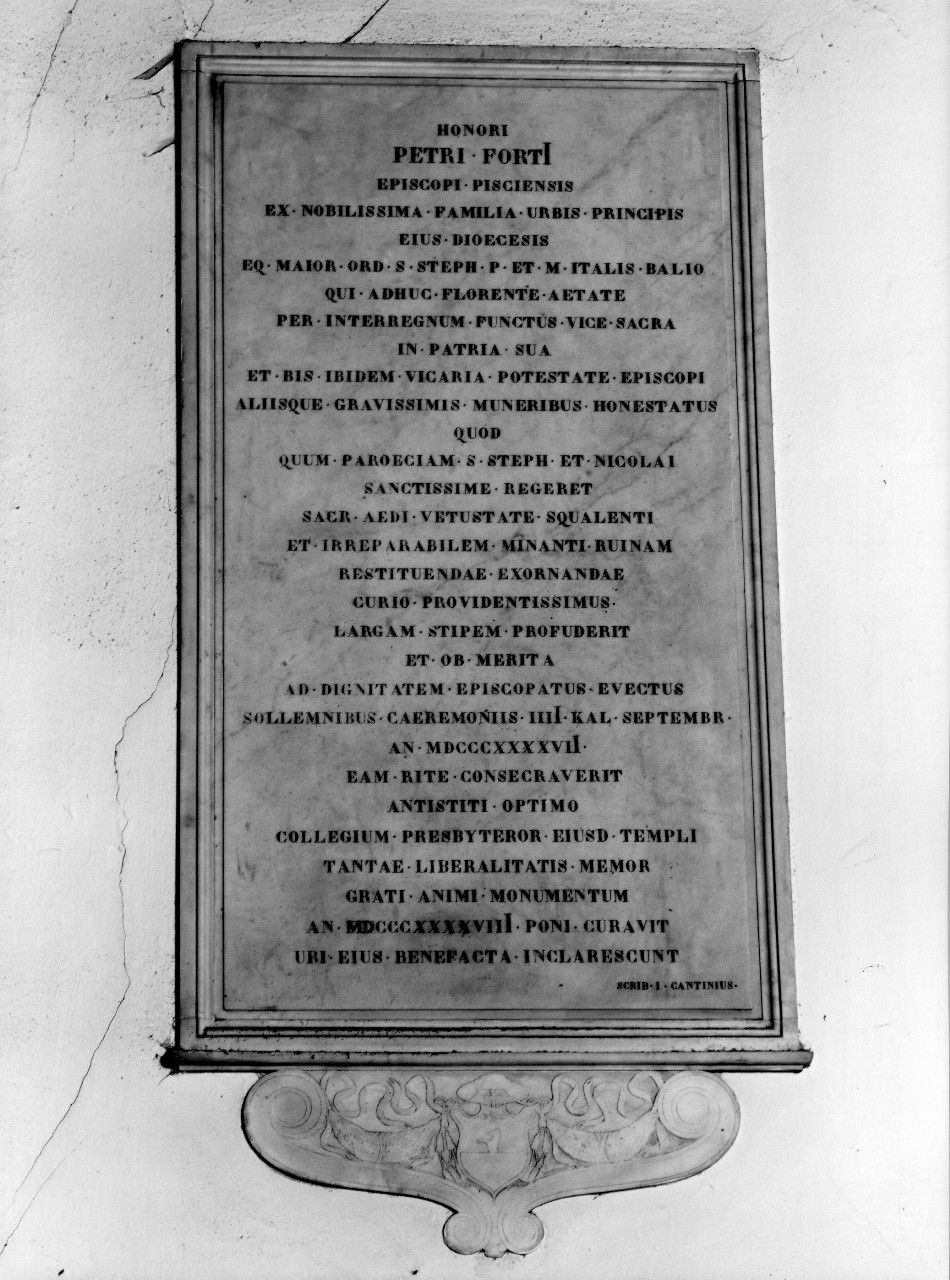 HONORI
PETRI · FORTI
EPISCOPI · PISCIENSIS
EX · NOBILISSIMA · FAMILIA · URBIS · PRINCIPIS
EIUS · DIOECESIS
EQ · MAIOR · ORD · S · STEPH · P · ET · M · ITALIS · BALIO
QUI · ADHUC · FLORENTE · AETATE
PER · INTERREGNUM · FUNCTUS · VICE · SACRA
IN · PATRIA · SUA
ET · BIS · IBIDEM · VICARIA · POTESTATE · EPISCOPI
ALIISQUE · GRAVISSIMIS · MUNERIBUS · HONESTATUS
QUOD
QUUM · PAROECIAM · S · STEPH · ET · NICOLAI
SANCTISSIME · REGERET
SACR · AEDI · VETUSTATE · SQUALENTI
ET · IRREPARABILEM · MINANTI · RUINAM
RESTITUENDAE · EXORNANDAE
CURIO · PROVIDENTISSIMUS ·
LARGAM · STIPEM · PROFUDERIT
ET · OB · MERITA
AD · DIGNITATEM · EPISCOPATUS · EVECTUS
SOLLEMNIBUS · CAEREMONIIS · IIII · KAL · SEPTEMBR ·
AN · MDCCCXXXXVII ·
EAM · RITE · CONSECRAVERIT
ANTISTITI · OPTIMO
COLLEGIUM · PRESBYTEROR · EIUSD · TEMPLI
TANTAE · LIBERALITATIS · MEMOR
GRATI · ANIMI · MONUMENTUM
AN · MDCCCXXXXVIIII · PONI · CURAVIT
UBI · EIUS · BENEFACTA · INCLARESCUNT
SCRIB · I · CANTINIUS ·